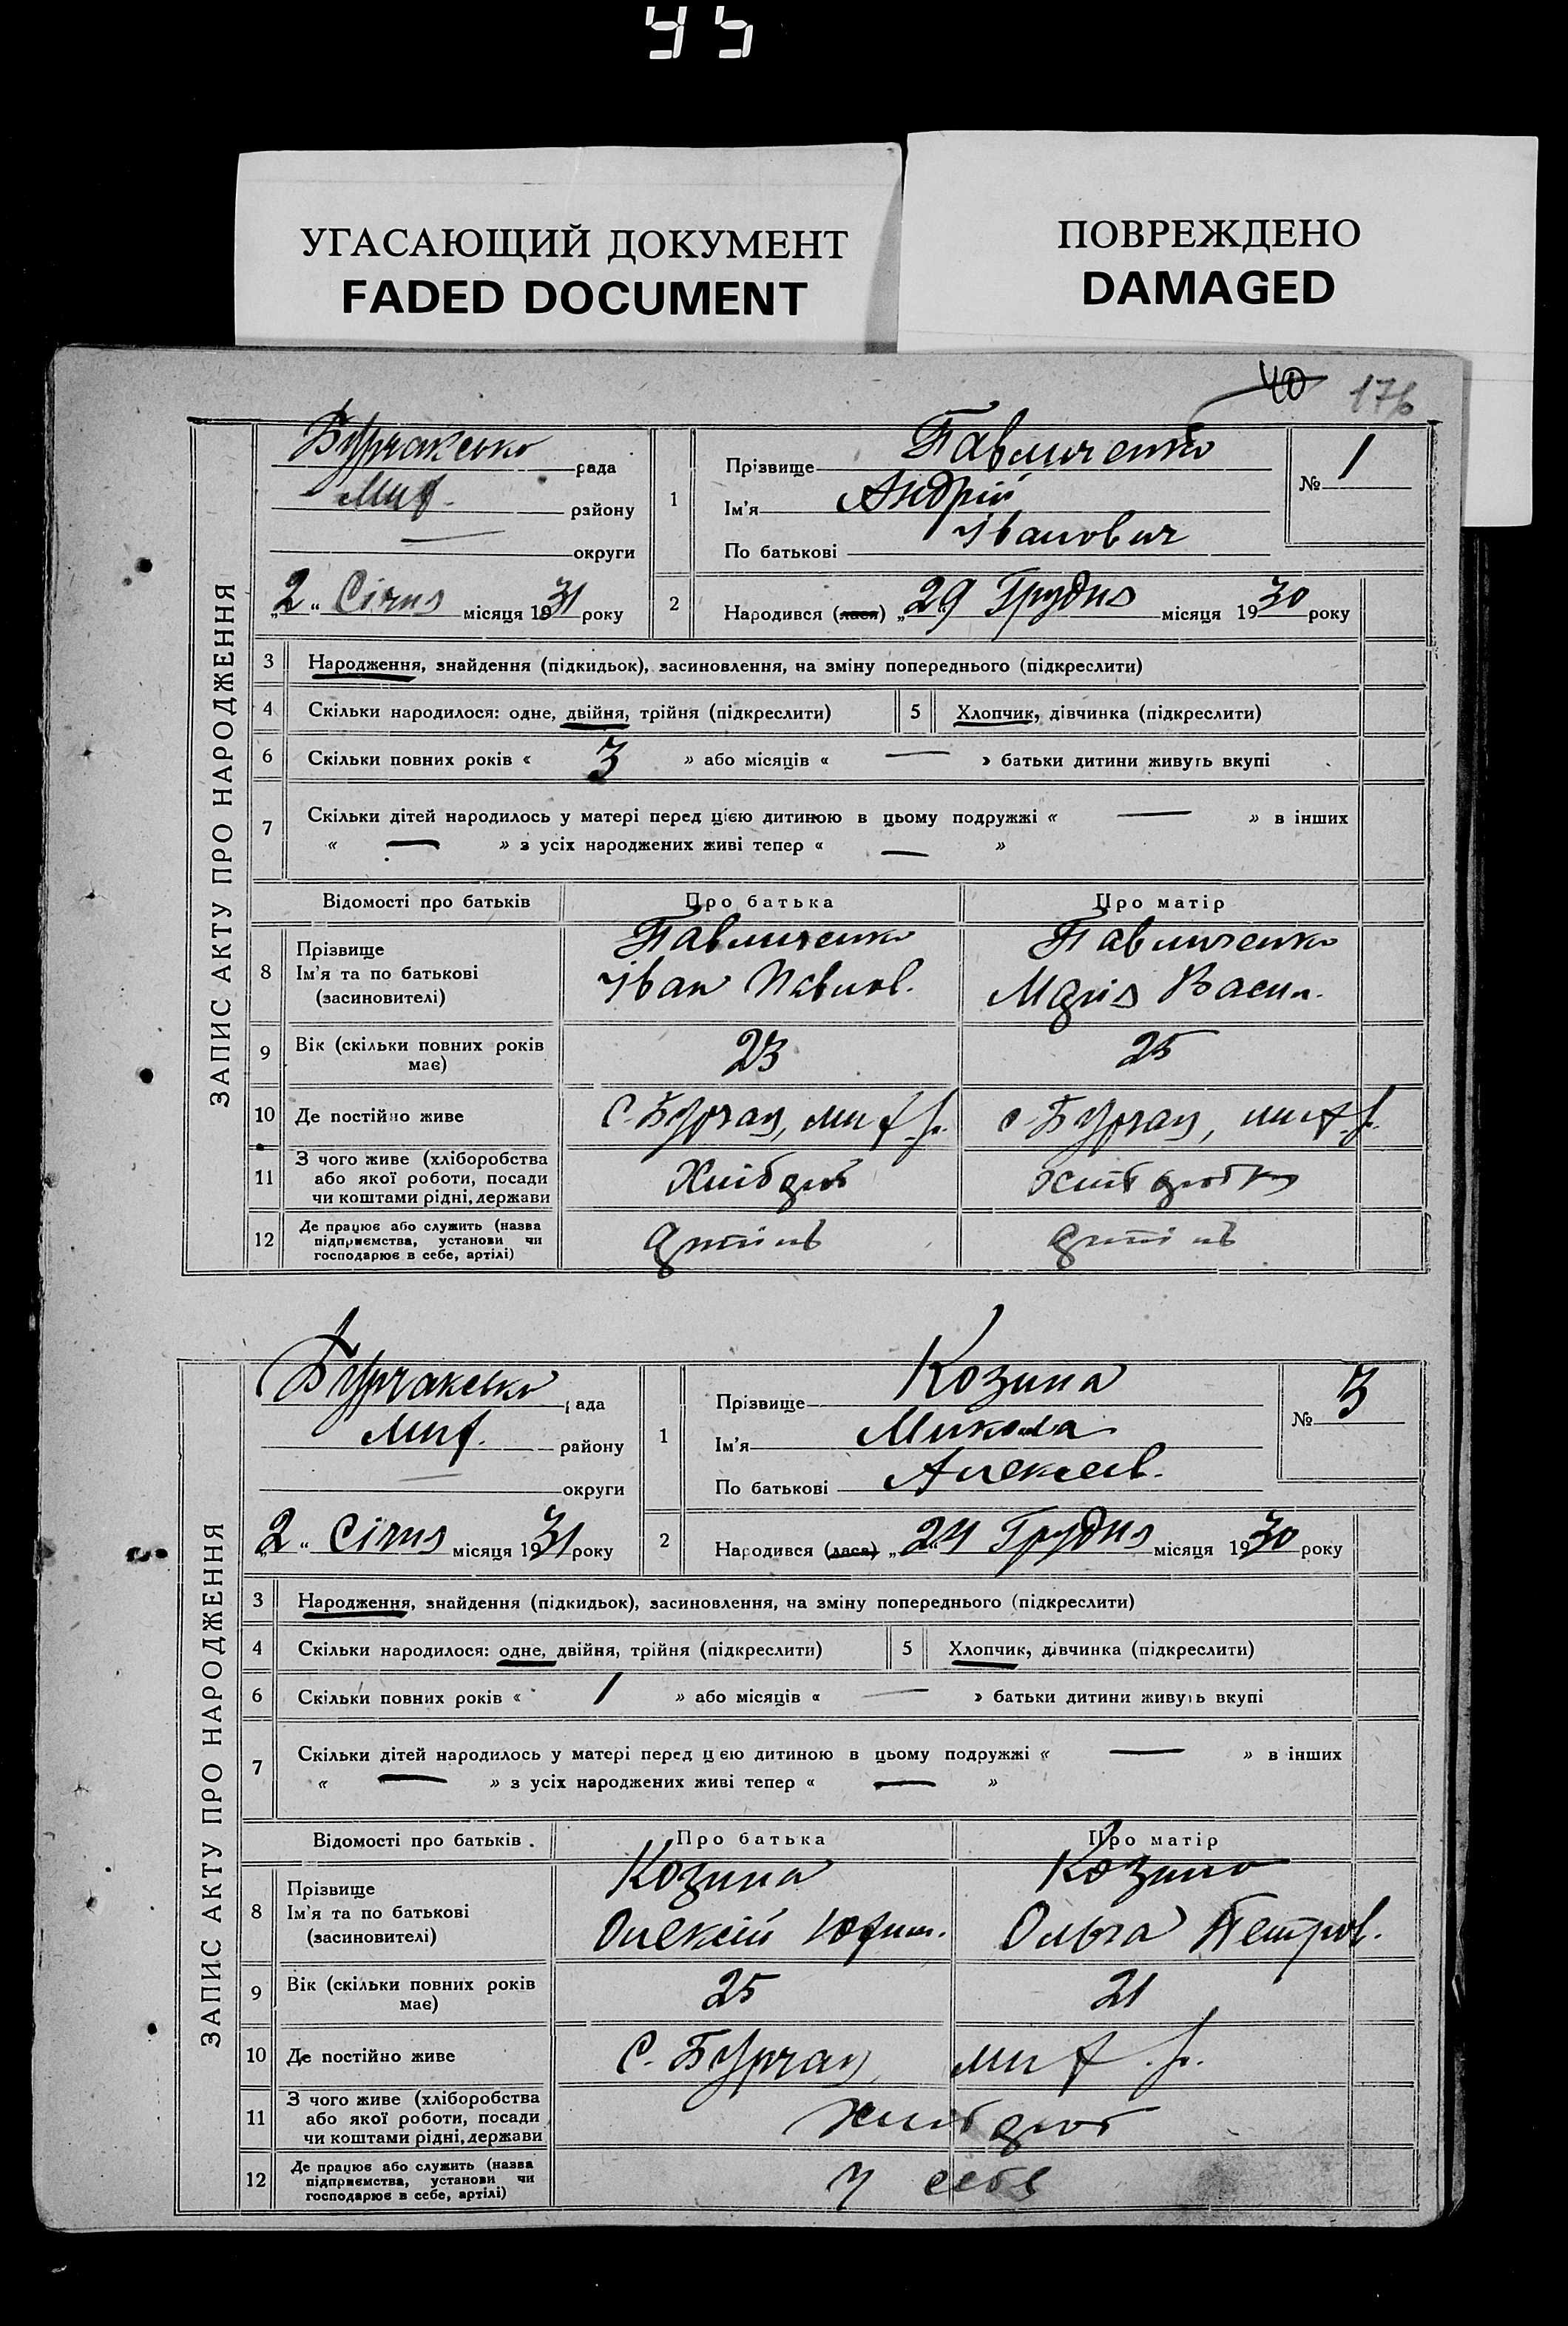 95
УГАСАЮЩИЙ ДОКУМЕНТ
FADED DOCUMENT
ПОВРЕЖДЕНО
DAMAGED
40 176
ЗАПИС АКТУ ПРО НАРОДЖЕННЯ
Бурчаксько рада
Миф. району
— округи
„2“ Січня місяця 1931 року
1 Прізвище Павличенко
Ім'я Андрій
По батькові Іванович
№ 1
2 Народився (лася) „29 Грудня місяця 1930 року
3 Народження, знайдення (підкидьок), засиновлення, на зміну попереднього (підкреслити)
4 Скільки народилося: одне, двійня, трійня (підкреслити) 5 Хлопчик, дівчинка (підкреслити)
6 Скільки повних років « 3 » або місяців « — » батьки дитини живуть вкупі
7 Скільки дітей народилось у матері перед цією дитиною в цьому подружжі « — » в інших
« — » з усіх народжених живі тепер « — »
Відомості про батьків Про батька Про матір
8 Прізвище Павличенко Павличенко
Ім'я та по батькові Іван Павлов. Марія Васил.
(засиновителі)
9 Вік (скільки повних років має) 23 25
10 Де постійно живе С. Бурчак, миф. р. с. Бурчак, миф. р.
11 З чого живе (хліборобства
або якої роботи, посади Хлібороб
чи коштами рідні, держави
12 Де працює або служить (назва
підприємства, установи чи
господарює в себе, артілі)
ЗАПИС АКТУ ПРО НАРОДЖЕННЯ
Бурчаксько рада
Миф. району
— округи
„2“ Січня місяця 1931 року
1 Прізвище Козина
Ім'я Микола
По батькові Алексеев.
№ 3
2 Народився (лася) „24 Грудня місяця 1930 року
3 Народження, знайдення (підкидьок), засиновлення, на зміну попереднього (підкреслити)
4 Скільки народилося: одне, двійня, трійня (підкреслити) 5 Хлопчик, дівчинка (підкреслити)
6 Скільки повних років « 1 » або місяців « — » батьки дитини живуть вкупі
7 Скільки дітей народилось у матері перед цією дитиною в цьому подружжі « — » в інших
« — » з усіх народжених живі тепер « — »
Відомості про батьків Про батька Про матір
8 Прізвище Козина Козина
Ім'я та по батькові Олексій Юфим. Ольга Петров.
(засиновителі)
9 Вік (скільки повних років має) 25 21
10 Де постійно живе С. Бурчак, миф. р.
11 З чого живе (хліборобства
або якої роботи, посади хлібороб
чи коштами рідні, держави
12 Де працює або служить (назва
підприємства, установи чи У себе
господарює в себе, артілі)